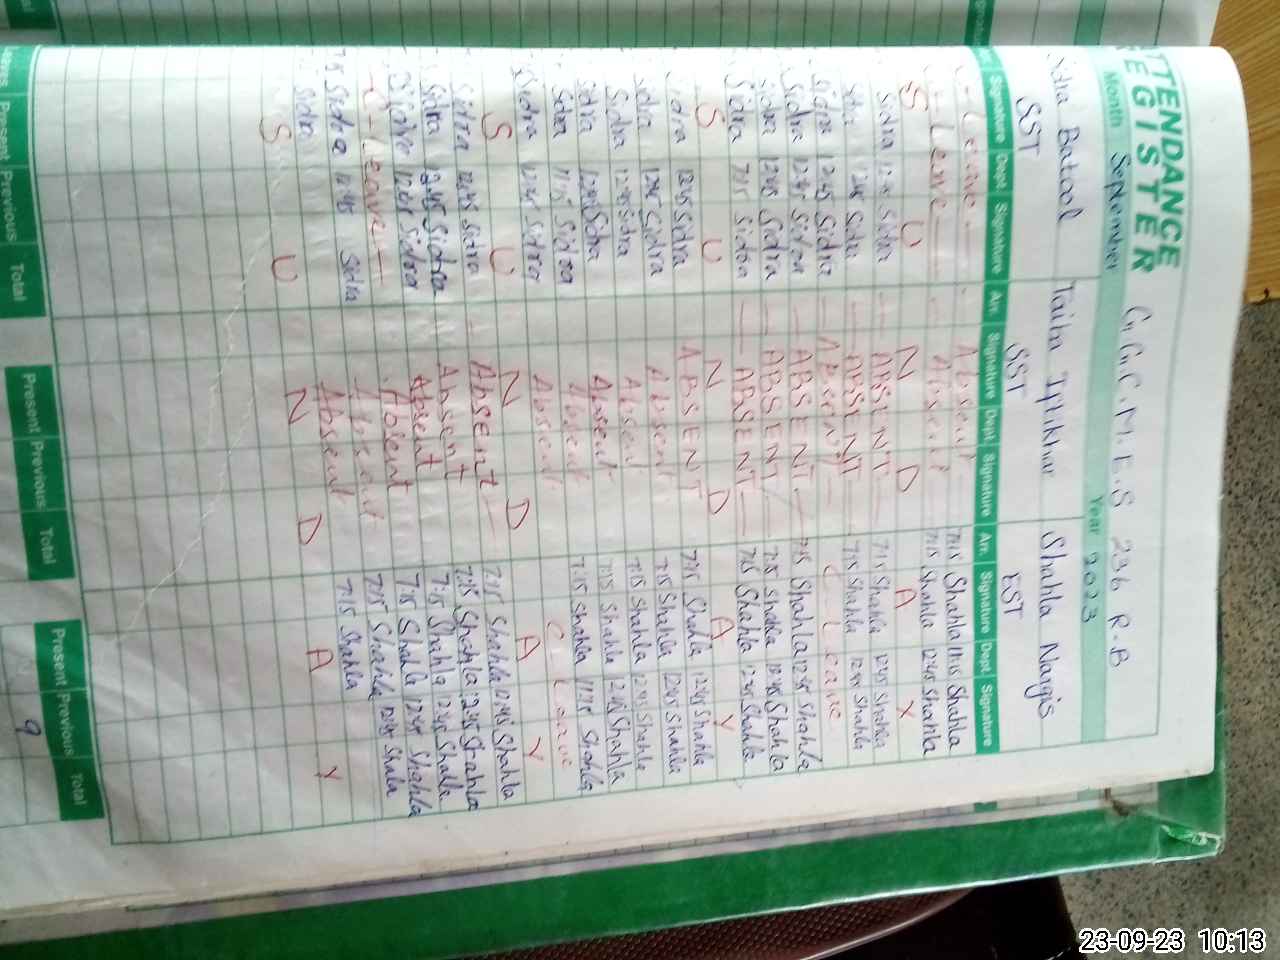 ATTENDANCE
REGISTER G.G.C.M.E.S 236 R.B
Month September Year 2023
Sidra Batool Taiba Iftikhar Shahla Nargis
SST SST EST
Signature Dept. Signature Arr. Signature Dept. Signature Arr. Signature Dept. Signature
C-Leave Absent 7:15 Shahla 11:15 Shahla
C-Leave Absent 7:15 Shahla 12:45 Shahla
S U N D A Y
Sidra 12:45 Sidra ABSENT 7:15 Shahla 12:45 Shahla
Sidra 12:45 Sidra ABSENT 7:15 Shahla 12:45 Shahla
Sidra 12:45 Sidra Absent C-Leave
Sidra 12:45 Sidra ABSENT 7:15 Shahla 12:45 Shahla
Sidra 12:45 Sidra ABSENT 7:15 Shahla 12:45 Shahla
Sidra 7:15 Sidra ABSENT 7:15 Shahla 12:45 Shahla
S U N D A Y
Sidra 12:45 Sidra ABSENT 7:15 Shahla 12:45 Shahla
Sidra 12:45 Sidra Absent 7:15 Shahla 12:45 Shahla
Sidra 12:45 Sidra Absent 7:15 Shahla 12:45 Shahla
Sidra 12:45 Sidra Absent 7:15 Shahla 12:45 Shahla
Sidra 11:15 Sidra Absent 7:15 Shahla 11:15 Shahla
Sidra 12:45 Sidra Absent C-Leave
S U N D A Y
Sidra 12:45 Sidra Absent 7:15 Shahla 12:45 Shahla
Sidra 12:45 Sidra Absent 7:15 Shahla 12:45 Shahla
Sidra 12:05 Sidra Absent 7:15 Shahla 12:45 Shahla
C-Leave Absent 7:15 Shahla 12:45 Shahla
7:15 Sidra 12:45 Sidra Absent 7:15 Shahla 12:45 Shahla
Sidra Absent 7:15 Shahla
S U N D A Y
Leaves Present Previous Total Present Previous Total Present Previous Total
9
23-09-23 10:13